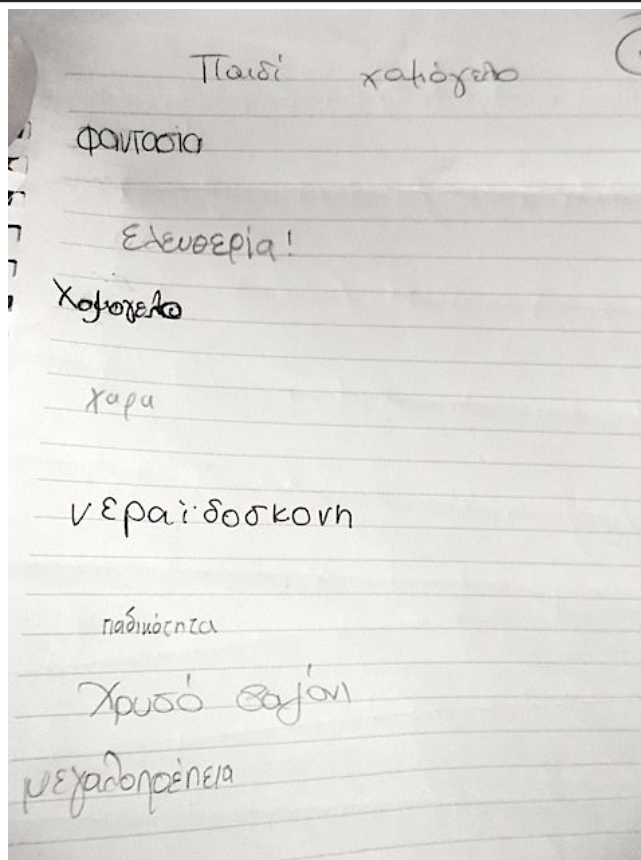 Παιδί χαμόγελο
φαντασία
Ελευθερία!
Χαμογελο
χαρα
νεραϊδοσκονη
παδικότητα
Χρυσό
μεγαλοπρέπεια